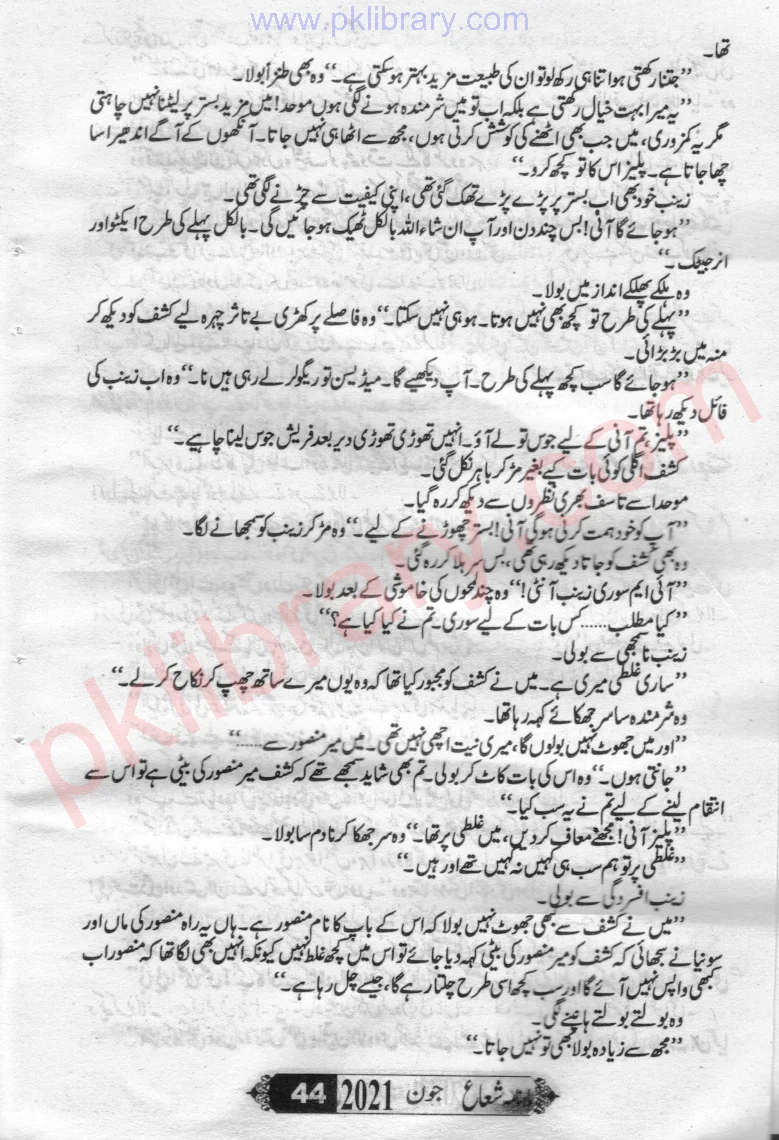 www.pklibrary.com
تھا۔
”جتنا رکھتی ہو اتنا ہی رکھ لو تو ان کی طبیعت مزید بہتر ہو سکتی ہے۔“ وہ بھی طنزاً بولا۔
”یہ میرا بہت خیال رکھتی ہے بلکہ اب تو میں شرمندہ ہونے لگی ہوں موحد! میں مزید بستر پر لیٹنا نہیں چاہتی
مگر یہ کمزوری، میں جب بھی اٹھنے کی کوشش کرتی ہوں، مجھ سے اٹھا ہی نہیں جاتا۔ آنکھوں کے آگے اندھیرا سا
چھا جاتا ہے۔ پلیز اس کا تو کچھ کرو۔“
زینب خود بھی اب بستر پر پڑے پڑے تھک گئی تھی، اپنی کیفیت سے چڑنے لگی تھی۔
”ہو جائے گا آنی! بس چند دن اور آپ ان شاء اللہ بالکل ٹھیک ہو جائیں گی۔ بالکل پہلے کی طرح ایکٹو اور
انرجیٹک۔“
وہ ہلکے پھلکے انداز میں بولا۔
”پہلے کی طرح تو کچھ بھی نہیں ہوتا۔ ہو ہی نہیں سکتا۔“ وہ فاصلے پر کھڑی بے تاثر چہرہ لیے کشف کو دیکھ کر
منہ میں بڑبڑائی۔
”ہو جائے گا سب کچھ پہلے کی طرح۔ آپ دیکھیے گا۔ میڈیسن تو ریگولر لے رہی ہیں نا۔“ وہ اب زینب کی
فائل دیکھ رہا تھا۔
”پلیز، تم آنی کے لیے جوس تو لے آؤ۔ انہیں تھوڑی تھوڑی دیر بعد فریش جوس لینا چاہیے۔“
کشف اگلی کوئی بات کیے بغیر مڑ کر باہر نکل گئی۔
موحد اسے تاسف بھری نظروں سے دیکھ کر رہ گیا۔
”آپ کو خود ہمت کرنی ہو گی آنی! بستر چھوڑنے کے لیے۔“ وہ مڑ کر زینب کو سمجھانے لگا۔
وہ بھی کشف کو جاتا دیکھ رہی تھی، بس سر ہلا کر رہ گئی۔
”آئی ایم سوری زینب آنٹی!“ وہ چند لمحوں کی خاموشی کے بعد بولا۔
”کیا مطلب...... کس بات کے لیے سوری۔ تم نے کیا کیا ہے؟“
زینب ناسمجھی سے بولی۔
”ساری غلطی میری ہے۔ میں نے کشف کو مجبور کیا تھا کہ وہ یوں میرے ساتھ چھپ کر نکاح کر لے۔“
وہ شرمندہ سا سر جھکائے کہہ رہا تھا۔
”اور میں جھوٹ نہیں بولوں گا، میری نیت اچھی نہیں تھی۔ میں میر منصور سے......“
”جانتی ہوں۔“ وہ اس کی بات کاٹ کر بولی۔ تم بھی شاید سمجھے تھے کہ کشف میر منصور کی بیٹی ہے تو اس سے
انتقام لینے کے لیے تم نے یہ سب کیا“
”پلیز آنی! مجھے معاف کر دیں، میں غلطی پر تھا۔“ وہ سر جھکا کر نادم سا بولا۔
”غلطی پر تو ہم سب ہی کہیں نہ کہیں تھے اور ہیں“
زینب افسردگی سے بولی۔
”میں نے کشف سے بھی جھوٹ نہیں بولا کہ اس کے باپ کا نام منصور ہے۔ ہاں یہ راہ منصور کی ماں اور
سونیا نے بجھائی کہ کشف کو میر منصور کی بیٹی کہہ دیا جائے تو اس میں کچھ غلط نہیں کیونکہ انہیں بھی لگا تھا کہ منصور اب
کبھی واپس نہیں آئے گا اور سب کچھ اسی طرح چلتا رہے گا، جیسے چل رہا ہے۔“
وہ بولتے بولتے ہانپنے لگی۔
”مجھ سے زیادہ بولا بھی تو نہیں جاتا۔“
ماہنامہ شعاع جون 2021 44
pklibrary.com